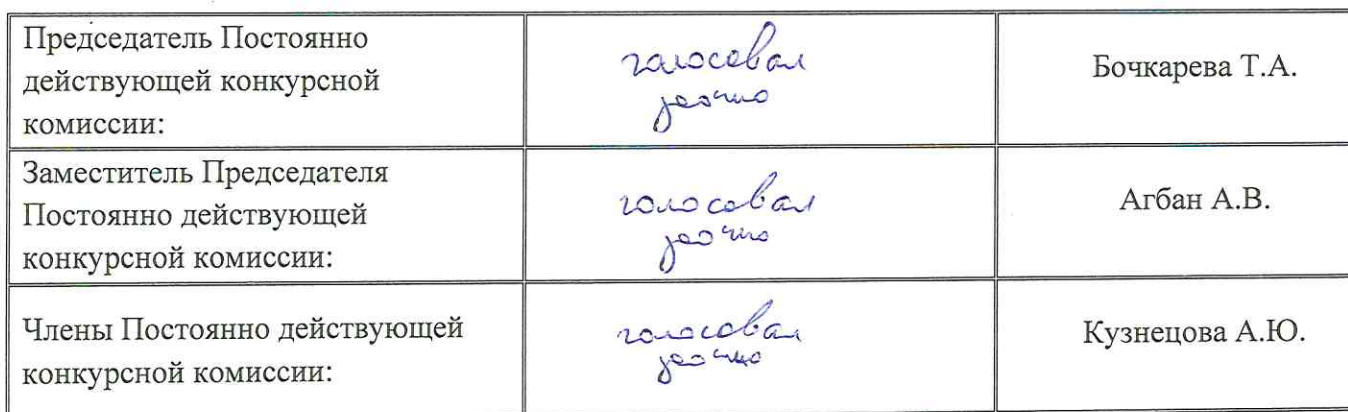 Председатель Постоянно
действующей конкурсной
комиссии:
голосовал
заочно
Бочкарева Т.А.
Заместитель Председателя
Постоянно действующей
конкурсной комиссии:
голосовал
заочно
Агбан А.В.
Члены Постоянно действующей
конкурсной комиссии:
голосовал
заочно
Кузнецова А.Ю.